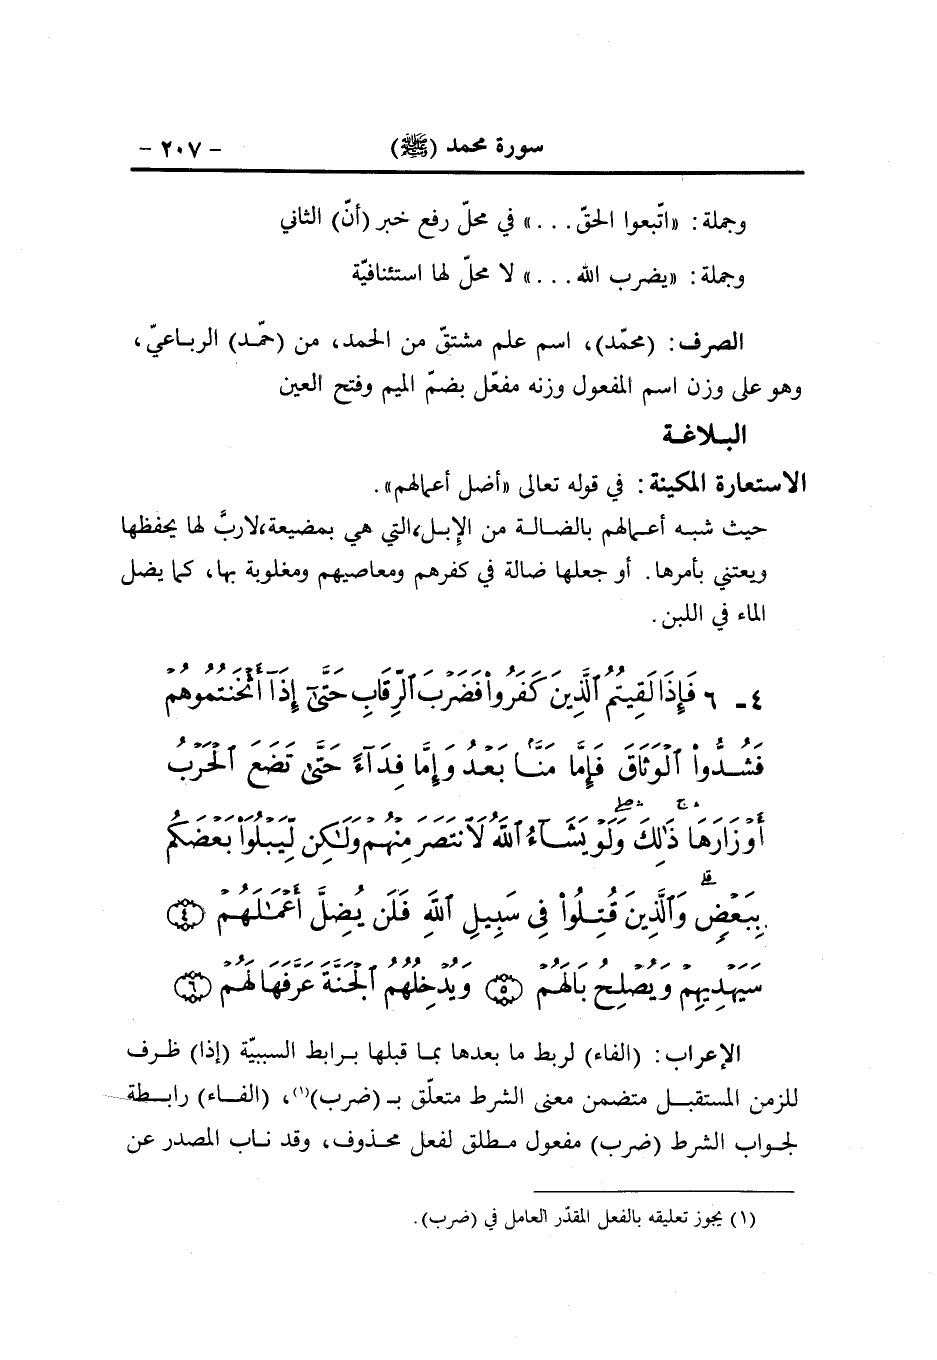 سورة محمد (ﷺ) - ٢٠٧ -
وجملة: «اتّبعوا الحقّ . . .» في محلّ رفع خبر (أنّ) الثاني
وجملة: «يضرب الله . . .» لا محلّ لها استئنافيّة
الصرف: (محمّد)، اسم علم مشتقّ من الحمد، من (حمّد) الرباعيّ،
وهو على وزن اسم المفعول وزنه مفعّل بضمّ الميم وفتح العين
البلاغة
الاستعارة المكينة: في قوله تعالى «أضل أعمالهم».
حيث شبه أعمالهم بالضالة من الإبل،التي هي بمضيعة،لاربَّ لها يحفظها
ويعتني بأمرها. أو جعلها ضالة في كفرهم ومعاصيهم ومغلوبة بها، كما يضل
الماء في اللبن.
٤ - ٦ فَإِذَا لَقِيتُمُ ٱلَّذِينَ كَفَرُوا۟ فَضَرْبَ ٱلرِّقَابِ حَتَّىٰٓ إِذَآ أَثْخَنتُمُوهُمْ
فَشُدُّوا۟ ٱلْوَثَاقَ فَإِمَّا مَنًّۢا بَعْدُ وَإِمَّا فِدَآءً حَتَّىٰ تَضَعَ ٱلْحَرْبُ
أَوْزَارَهَا ۚ ذَٰلِكَ ۖ وَلَوْ يَشَآءُ ٱللَّهُ لَٱنتَصَرَ مِنْهُمْ وَلَٰكِن لِّيَبْلُوَا۟ بَعْضَكُم
بِبَعْضٍ ۗ وَٱلَّذِينَ قُتِلُوا۟ فِى سَبِيلِ ٱللَّهِ فَلَن يُضِلَّ أَعْمَٰلَهُمْ ﴿٤﴾
سَيَهْدِيهِمْ وَيُصْلِحُ بَالَهُمْ ﴿٥﴾ وَيُدْخِلُهُمُ ٱلْجَنَّةَ عَرَّفَهَا لَهُمْ ﴿٦﴾
الإعراب: (الفاء) لربط ما بعدها بما قبلها برابط السببيّة (إذا) ظرف
للزمن المستقبل متضمن معنى الشرط متعلّق بـ (ضرب)(١)، (الفاء) رابطة
لجواب الشرط (ضرب) مفعول مطلق لفعل محذوف، وقد ناب المصدر عن
(١) يجوز تعليقه بالفعل المقدّر العامل في (ضرب).